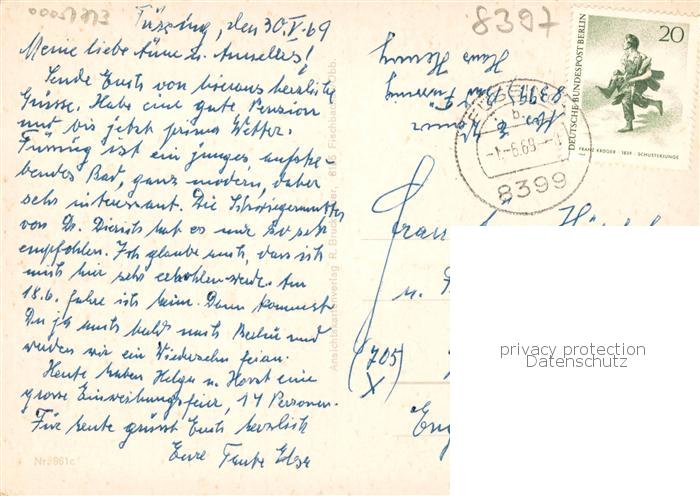 0000 1773
8397
Füssing, den 30.V.69
Meine liebe u. Annelies!
Sende Euch von hieraus herzliche
Grüsse. Habe eine gute Pension
und bis jetzt prima Wetter.
Füssing ist ein junges aufstre-
bendes Bad, ganz modern, daher
sehr interessant. Die Schwiegermutter
von Dr. hat es mir so sehr
empfohlen. Ich glaube auch, dass ich
mich hier sehr erhohlen werde. Am
18.6. fahre ich heim. Dann kommst
Du ja auch bald nach Berlin und
werden wir ein Wiedersehn feiern.
Heute haben Helga u. Horst eine
grosse Einweihungsfeier, 14 Personen.
Für heute grüsst Euch herzlich
Eure Tante
Nr. 861c
Ansichtskartenverlag R. 616 Fischbach
8397 Bad Füssing
Haus
DEUTSCHE BUNDESPOST BERLIN
20
FRANZ KRÜGER · 1839 · SCHUSTERJUNGE
-1.-6.69-
8399
Frau
u.
(705)
X
privacy protection
Datenschutz